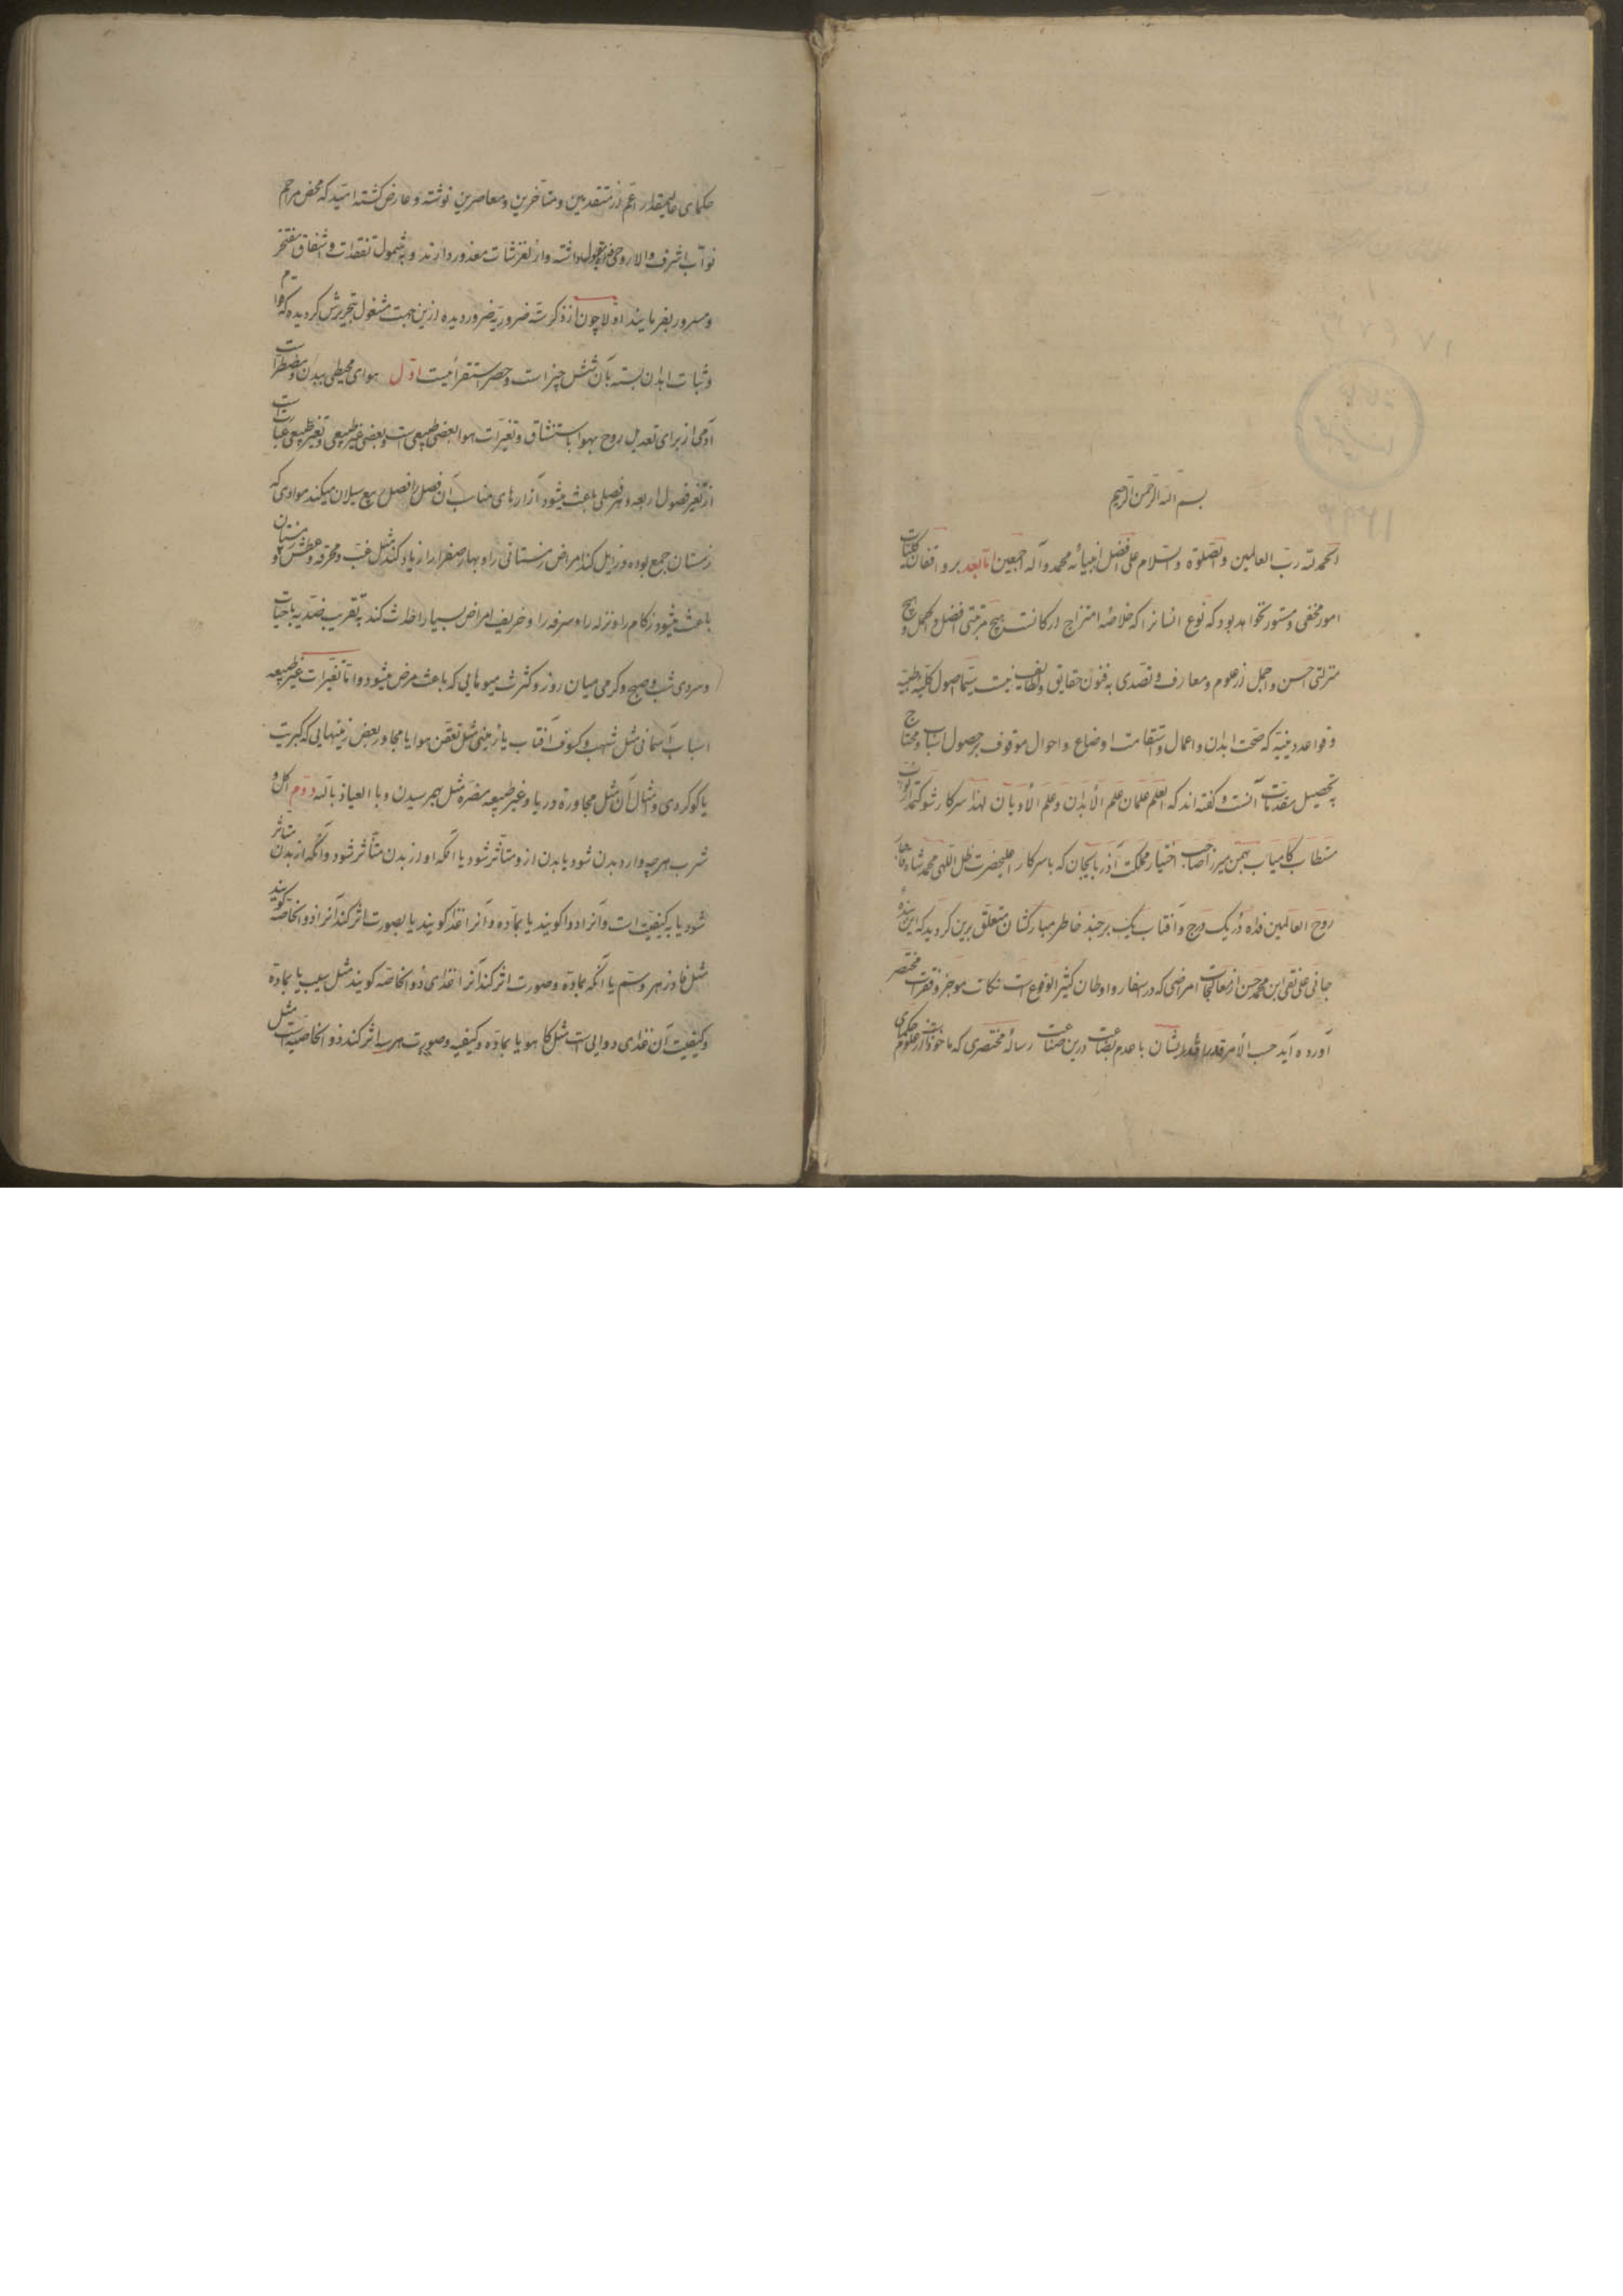 بسم الله الرحمن الرحیم
الحمد لله رب العالمین و الصلوة و السلام علی افضل انبیائه محمد و آله اجمعین اما بعد بر واقفان کلیات
امور مخفی و مستور نخواهد بود که نوع انسانرا که خلاصه امتزاج ارکانست هیچ مرتبتی افضل و اکمل و هیچ
منزلتی احسن و اجمل از علوم و معارف و تصدی به فنون حقایق و لطایف نیست سیما اصول کلیه طبیه
و قواعد دینیه که صحت ابدان و اعمال و استقامت اوضاع و احوال موقوف بر حصول اسباب و محتاج
به تحصیل مقدمات آنست و گفته اند که العلم علمان علم الأبدان و علم الأدیان لهذا سرکار شوکتمدار نواب
مستطاب کامیاب بهمن میرزا صاحب اختیار مملکت آذربایجان که با سرکار اعلیحضرت ظل اللهی محمد شاه قاجار
روح العالمین فداه در یک درج و آفتاب یک برجند خاطر مبارکشان متعلق برین کردید که این بنده
جانی علی نقی ابن محمد حسن از معالجات امراضی که در اسفار و اوطان کثیر الوقوع است نکات موجز و فقرات مختصر
آورده آید حسب الأمر قدر ایشان با عدم بضاعت درین صناعت رسالهٔ مختصری که ماخوذ از علوم حکمای
حکمای عالیمقدار اعم از متقدمین و متأخرین و معاصرین نوشته و عارض کشته امید که محض مراحم
نواب اشرف والا روحی فداه قبول داشته و از لغزشات معذور دارند و به شمول تفقدات و اشفاق مفتخر
و مسرور بفرمایند اولا چون از ذکر سته ضروریه ضرور دیده ازین جهت مشغول بتحریرش کردیده که قوام
و ثبات ابدان بسته بآن شش چیز است و حصر استقرائیست اول هوای محیطی ببدن و اضطرار است
آدمی از برای تعدیل روح بهوا باستنشاق و تغیرات هوا بعضی طبیعی است و بعضی غیر طبیعی و تغیر طبیعی عبارتست
از تغیر فصول اربعه و هر فصلی باعث میشود آزارهای مناسب آن فصل را فصل ربیع سیلان میکند موادی که
زمستان جمع بوده و زایل کند امراض زمستانی را و بهار صفرا را زیاد کند مثل غب و محرقه و عطش و زمستان
باعث میشود زکام را و نزله را و سرفه را و خریف امراض بسیار احداث کند به تقریب ضدیه با حیات
و سردی شب و صبح و کرمی میان روز و کثرت میوهایی که باعث مرض میشود و اما تغیرات غیر طبیعه
اسباب آسمانی مثل شهب و کسوف آفتاب یا زمینی مثل تعفن هوا یا مجاور بعض زمینهایی که کبریت
یا کوکردی و امثال آن مثل مجاورة دریا و غیر طبیعه مضره مثل بهم رسیدن وبا العیاذ بالله دویم اکل و
شرب هر چه وارد بدن شود یا بدن ازو متأثر شود یا آنکه او از بدن متأثر شود و آنکه از بدن متأثر
شود یا به کیفیت است و آنرا دوا کویند یا بماده و آنرا غذا کویند یا بصورت اثر کند آنرا ذو الخاصه کویند
مثل فادزهر و سم یا آنکه بماده و صورت اثر کند آنرا غذای ذو الخاصه کویند مثل سیب یا بماده
و کیفیت آن غذای دوایی است مثل کاهو یا بماده و کیفیه و صورت هر سه اثر کند ذو الخاصیه است مثل